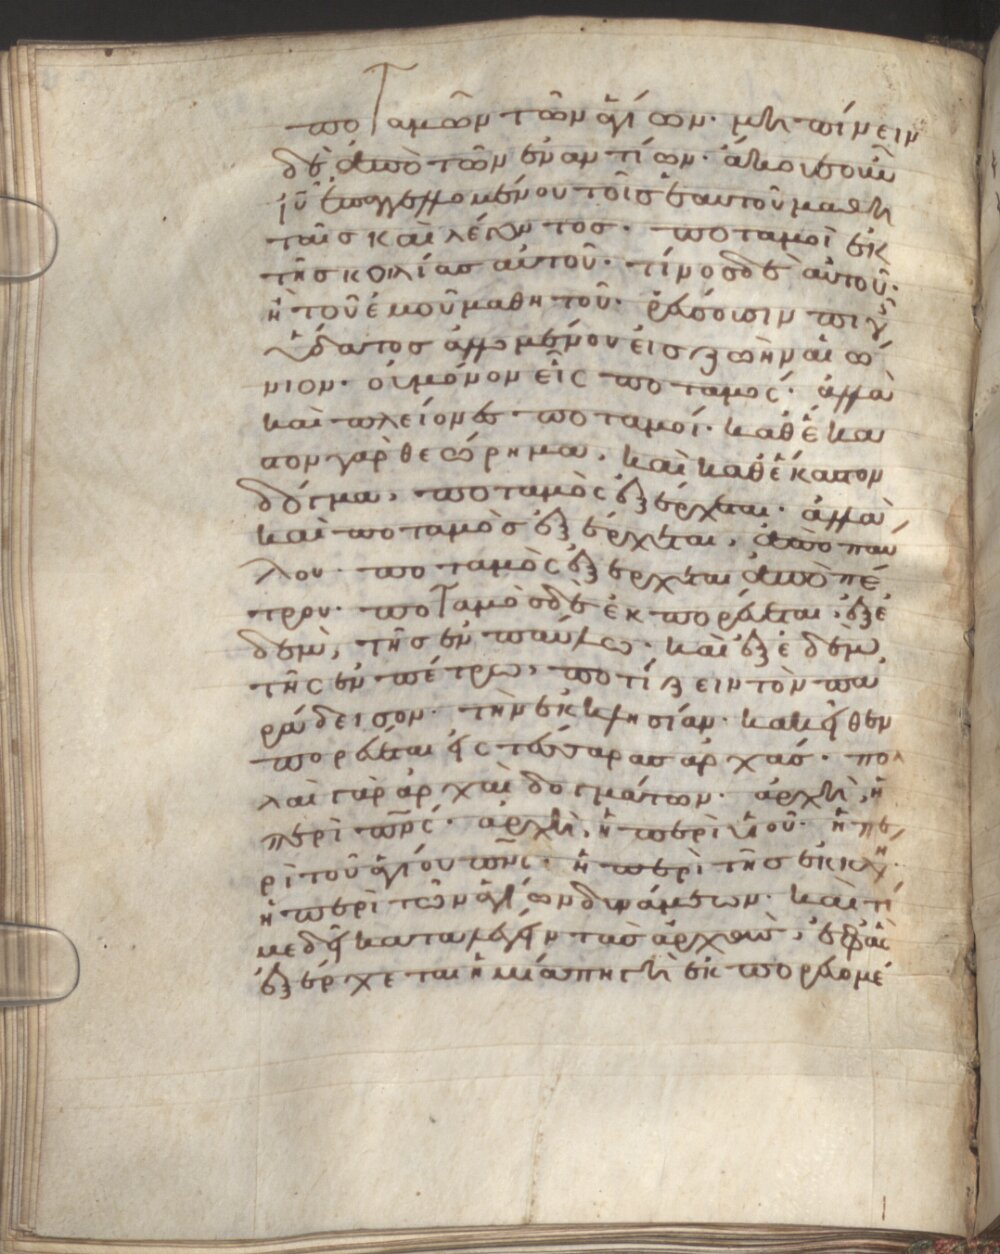 ποταμῶν τῶν ἁγίων· μὴ πίνειν
δὲ ἀπὸ τῶν ἐναντίων· ἄκουε οὖν
ἰῦ ἐπαγγελλομένου τοῖς ἑαυτοῦ μαθη
ταῖς καὶ λέγοντος· ποταμοὶ ἐκ
τῆς κοιλίας αὐτοῦ· τίνος δὲ αὐτοῦ·
ἢ τοῦ ἐμοῦ μαθητοῦ· ῥεύσουσιν πηγὴ
ὕδατος ἁλλομένου εἰς ζωὴν αἰώ
νιον· οὐ μόνον εἷς ποταμός· ἀλλὰ
καὶ πλείονες ποταμοί· καθ' ἕκα
στον γὰρ θεώρημα, καὶ καθ' ἕκαστον
δόγμα, ποταμὸς ἐξέρχεται· ἀλλὰ
καὶ ποταμὸς ἐξέρχεται, ἀπὸ παύ
λου· ποταμὸς ἐξέρχεται ἀπὸ πέ
τρου· ποταμὸς δὲ ἐκπορεύεται, ἐξ ἐ
δὲμ, τῆς ἐν παύλω· καὶ ἐξ ἐδὲμ,
τῆς ἐν πέτρω, ποτίζειν τὸν πα
ράδεισον· τὴν ἐκκλησίαν· κἀκεῖθεν
πορεύεται εἰς τέσσαρας ἀρχάς· πολ
λαὶ γὰρ ἀρχαὶ δογμάτων· ἀρχὴ, ἡ
περὶ πρς· ἀρχὴ, ἡ περὶ υἱοῦ· ἡ πε
ρὶ τοῦ ἁγίου πνς· ἡ περὶ τῆς ἐκκλη
ἡ περὶ τῶν ἁγίων δυνάμεων· καὶ τί
με δεῖ καταλέγειν τὰς ἀρχὰς, ἐφ' αἷς
ἐξέρχεται ἡ μία πηγὴ ἐκπορευομέ